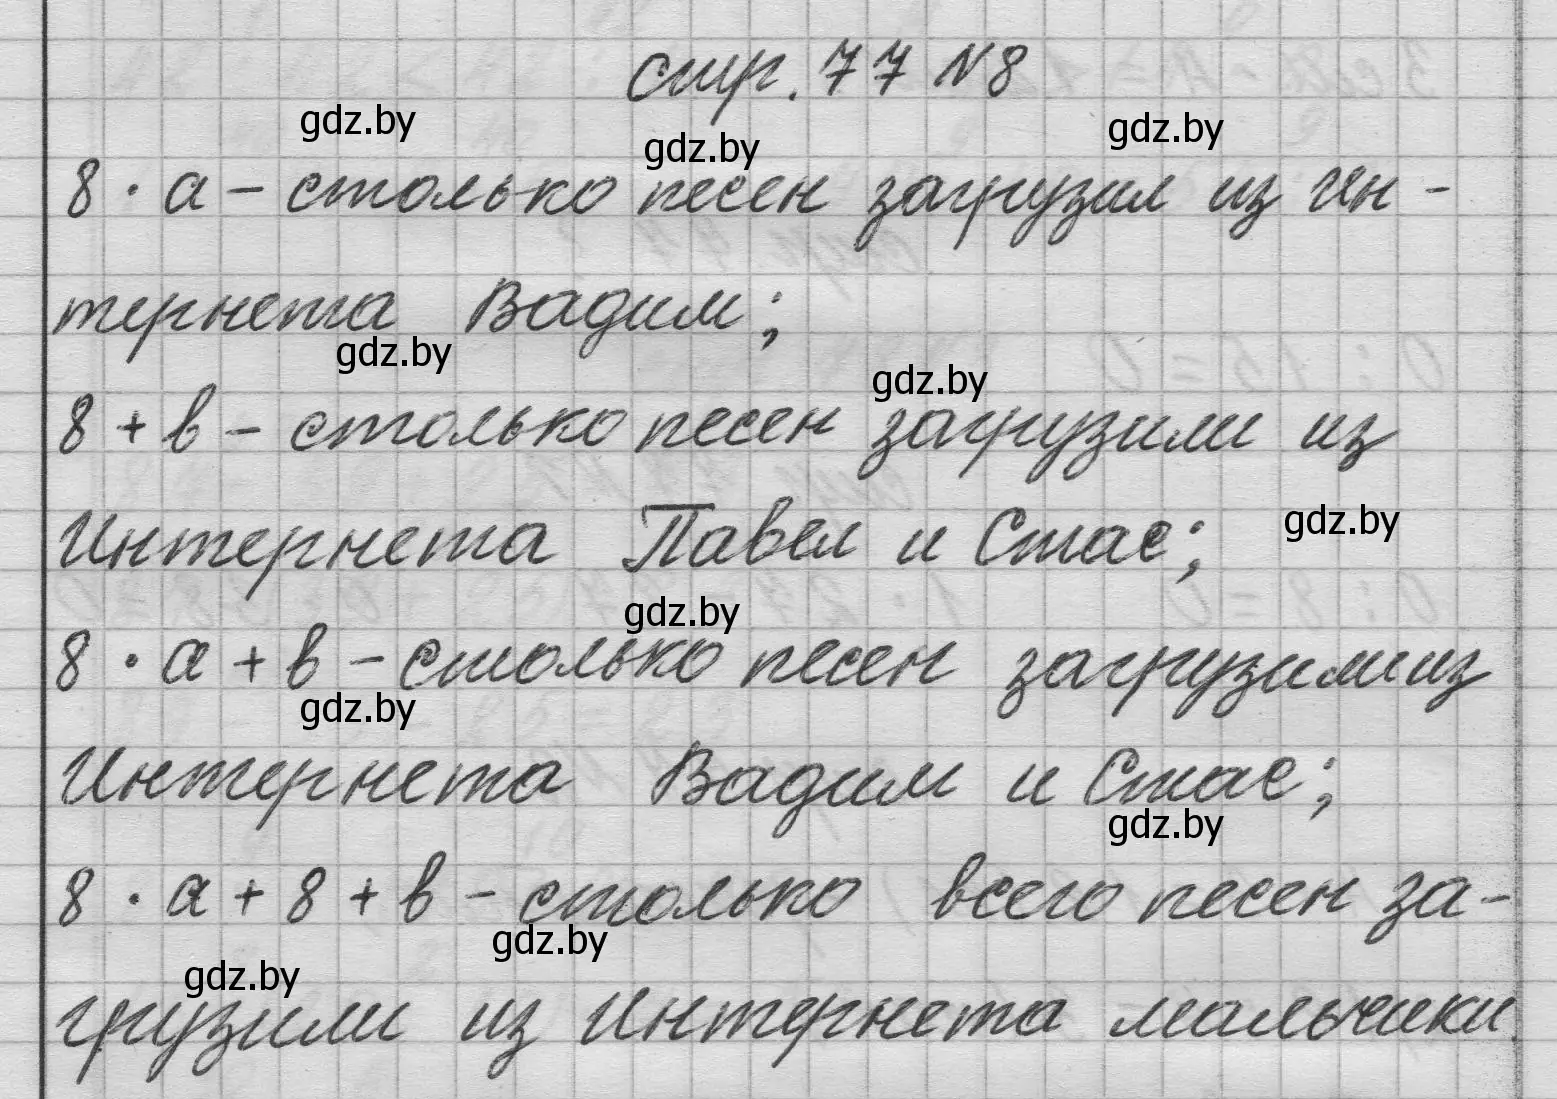 стр. 77 №8
gdz.by gdz.by gdz.by
8 · а – столько песен загрузил из Ин-
тернета Вадим;
gdz.by gdz.by
8 + в – столько песен загрузили из
Интернета Павел и Стас;
gdz.by
gdz.by
8 · а + в – столько песен загрузили из
gdz.by
Интернета Вадим и Стас;
gdz.by
8 · а + 8 + в – столько всего песен за-
gdz.by
gdz.by
грузили из Интернета мальчики.